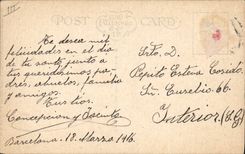 III
POST CARD
Te desea mil
felicidades en el dia
de tu santo, junto a
tus queridisimos pa-
dres, abuelos, familia
y amigos.
Tus tios.
Concepcion y Jacinto
Barcelona 18 Marzo 1916.
Srto. D.
Pepito Esteva Cosido.
Sn. Eusebio 66.
Interior